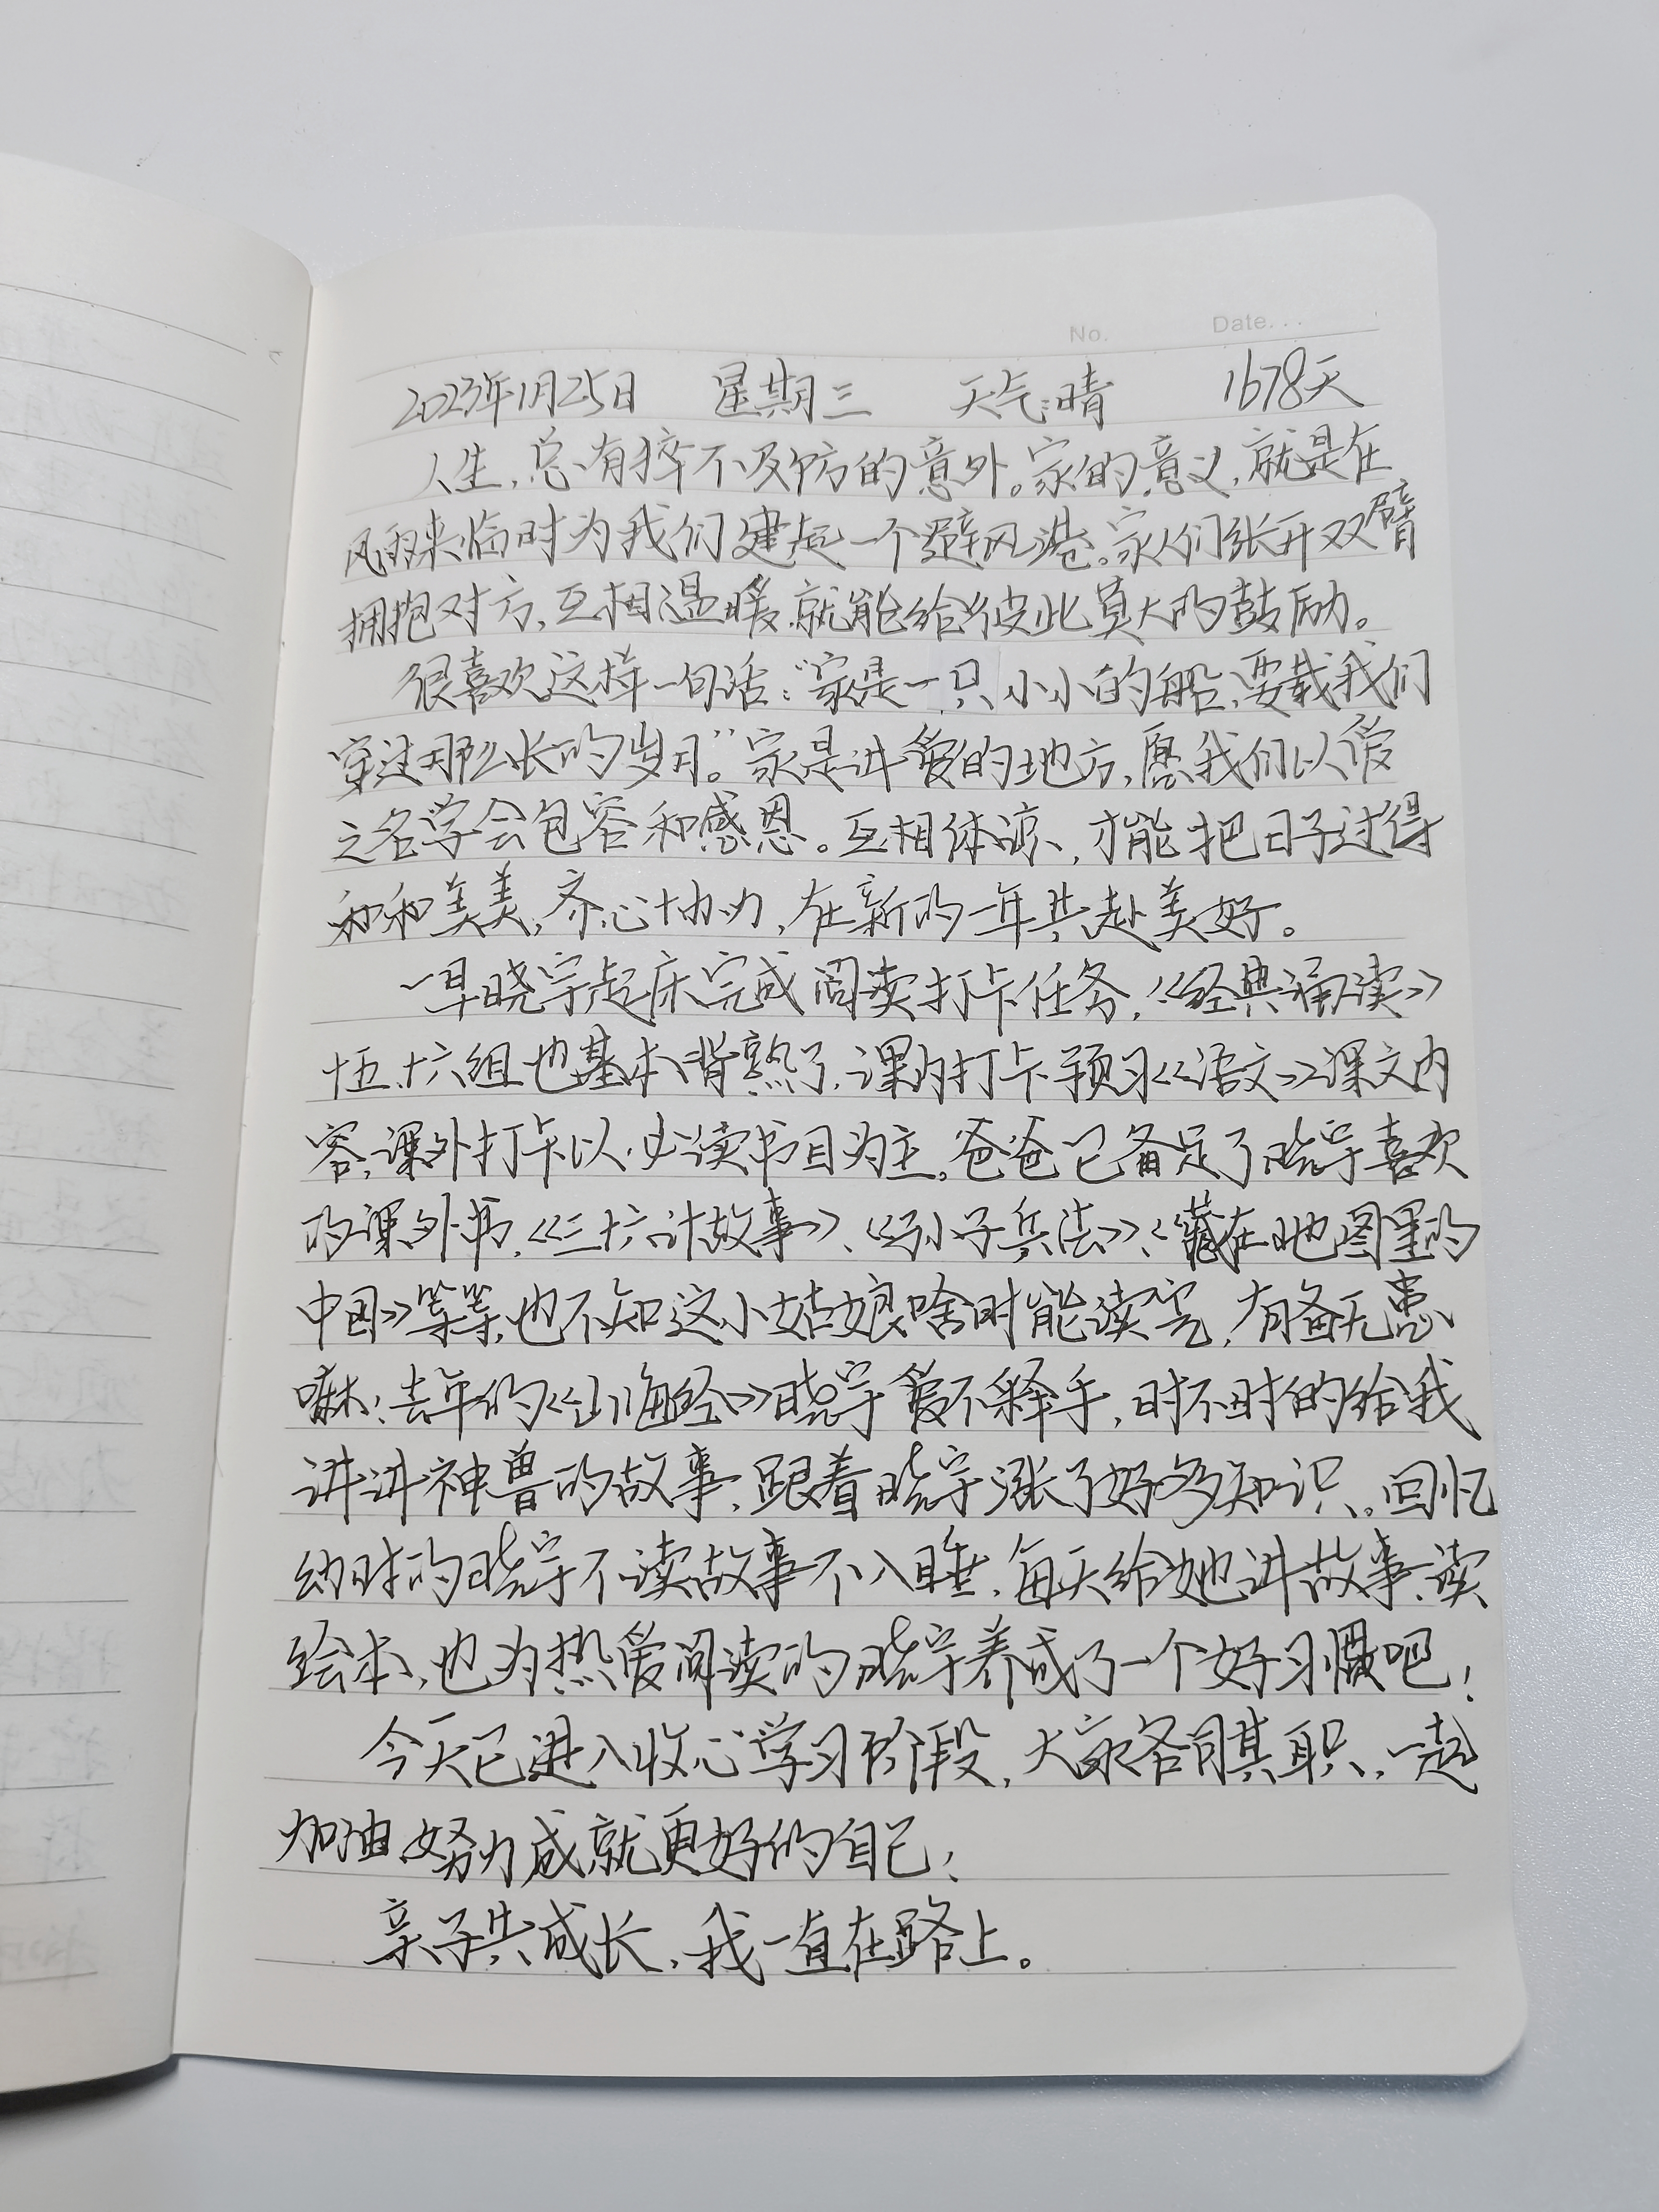 No. Date...
2023年1月25日 星期三 天气:晴 1678天
人生,总有猝不及防的意外。家的意义,就是在
风雨来临时为我们建起一个避风港。家人们张开双臂
拥抱对方,互相温暖,就能给彼此莫大的鼓励。
很喜欢这样一句话:“家是一只小小的船,要载我们
穿过那么长的岁月。”家是讲爱的地方,愿我们以爱
之名学会包容和感恩。互相体谅,才能把日子过得
和和美美,齐心协力,在新的一年共赴美好。
一早晓宇起床完成阅读打卡任务,《经典诵读》
十五、十六组也基本背熟了,课内打卡预习《语文》课文内
容,课外打卡以必读书目为主。爸爸已备足了晓宇喜欢
的课外书,《三十六计故事》、《孙子兵法》、《藏在地图里的
中国》等等,也不知这小姑娘啥时能读完,有备无患
嘛!去年的《山海经》晓宇爱不释手,时不时的给我
讲讲神兽的故事,跟着晓宇涨了好多知识。回忆
幼时的晓宇不读故事不入睡,每天给她讲故事、读
绘本,也为热爱阅读的晓宇养成了一个好习惯吧!
今天已进入收心学习阶段,大家各司其职,一起
加油努力成就更好的自己!
亲子共成长,我一直在路上。